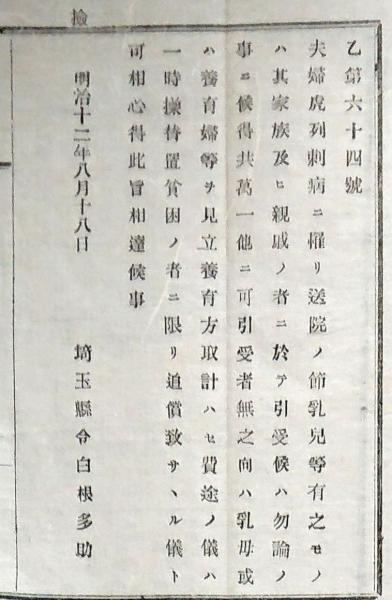 檢
乙第六十四號
夫婦虎列刺病ニ罹リ送院ノ節乳兒等有之モノ
ハ其家族及ヒ親戚ノ者ニ於テ引受候ハ勿論ノ
事ニ候得共萬一他ニ可引受者無之向ハ乳母或
ハ養育婦等ヲ見立養育方取計ハセ費途ノ儀ハ
一時操替置貧困ノ者ニ限リ追償致サヽル儀ト
可相心得此旨相達候事
明治十二年八月十八日
埼玉縣令白根多助